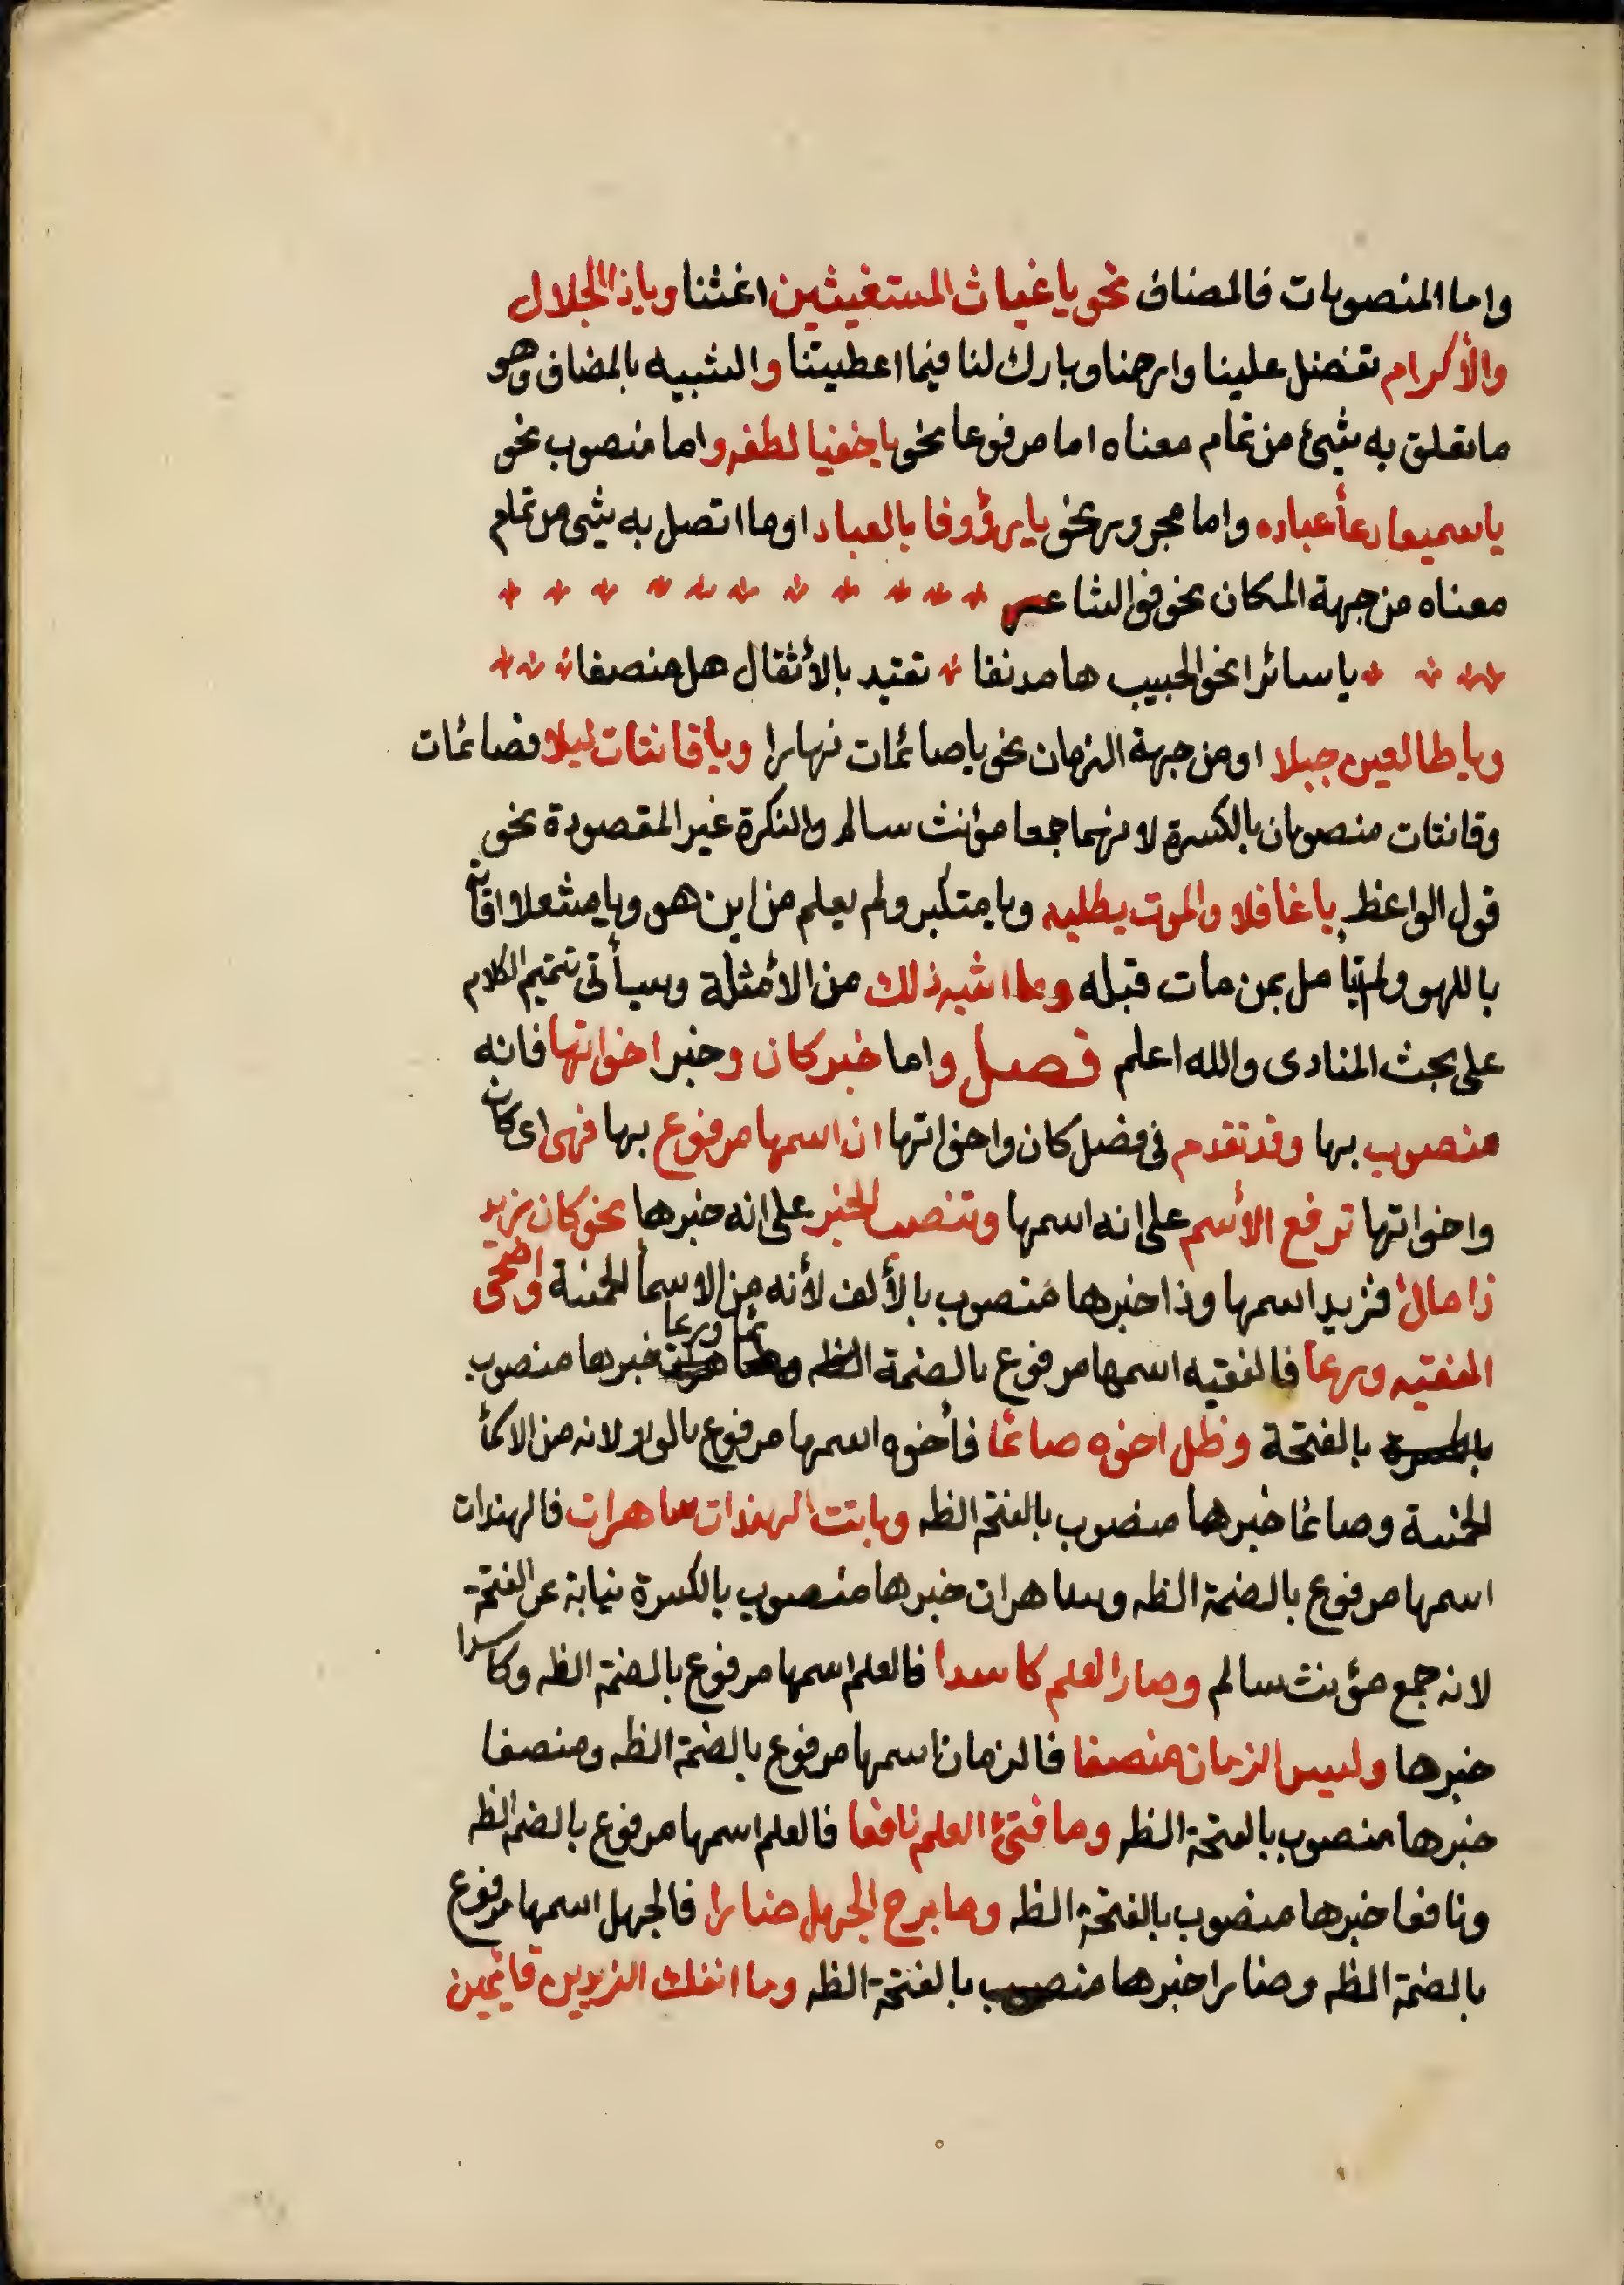 واما المنصوبات فالمضاف نحو يا غياث المستغيثين اغثنا ويا ذا الجلال
والأكرام تفضل علينا وارحمنا وبارك لنا فيما اعطيتنا والشبيه بالمضاف وهو
ما تعلق به شيئ من تمام معناه اما مرفوعا نحو يا خفيا لطفه واما منصوب نحو
يا سميعا دعأ عباده واما مجرور نحو يا رؤوفا بالعباد او ما اتصل به شيئ من تمام
معناه من جهة المكان نحو قول الشاعر
يا سائرا نحو الحبيب ها مدنفا تقيد بالأثقال هل منصفا
ويا طالعين جبلا او من جهة الزمان نحو يا صائمات نهارا ويا قانتات ليلا فصائمات
وقانتات منصوبان بالكسرة لانهما جمعا مؤنث سالم والنكرة غير المقصودة نحو
قول الواعظ يا غافلا والموت يطلبه ويا متكبر ولم يعلم من اين هو ويا مشعلا اوقاته
باللهو ولم يتأمل بمن مات قبله وما اشبه ذلك من الأمثلة وسيأتى تتميم الكلام
على بحث المنادى والله اعلم فصل واما خبر كان وخبر اخواتها فانه
منصوب بها وقد تقدم فى فصل كان واخواتها ان اسمها مرفوع بها فهى اى كان
واخواتها ترفع الأسم على انه اسمها وتنصب الخبر على انه خبرها نحو كان زيد
ذا مال فزيد اسمها وذا خبرها منصوب بالألف لأنه من الاسمأ الخمسة واضحى
الفقيه ورعا فالفقيه اسمها مرفوع بالضمة الظه ورعا خبرها منصوب
بالفتحة وظل اخوه صائما فأخوه اسمها مرفوع بالواو لانه من الاسمأ
الخمسة وصائما خبرها منصوب بالفتحة الظه وباتت الهندات ساهرات فالهندات
اسمها مرفوع بالضمة الظه وساهرات خبرها منصوب بالكسرة نيابة عن الفتحة
لانه جمع مؤنث سالم وصار العلم كاسدا فالعلم اسمها مرفوع بالضمة الظه وكاسدا
خبرها وليس الزمان منصفا فالزمان اسمها مرفوع بالضمة الظه ومنصفا
خبرها منصوب بالفتحة الظه وما فتئ العلم نافعا فالعلم اسمها مرفوع بالضمة الظه
ونافعا خبرها منصوب بالفتحة الظه وما برح الجهل ضارا فالجهل اسمها مرفوع
بالضمة الظه وضارا خبرها منصوب بالفتحة الظه وما انفك الزيدين قائمين